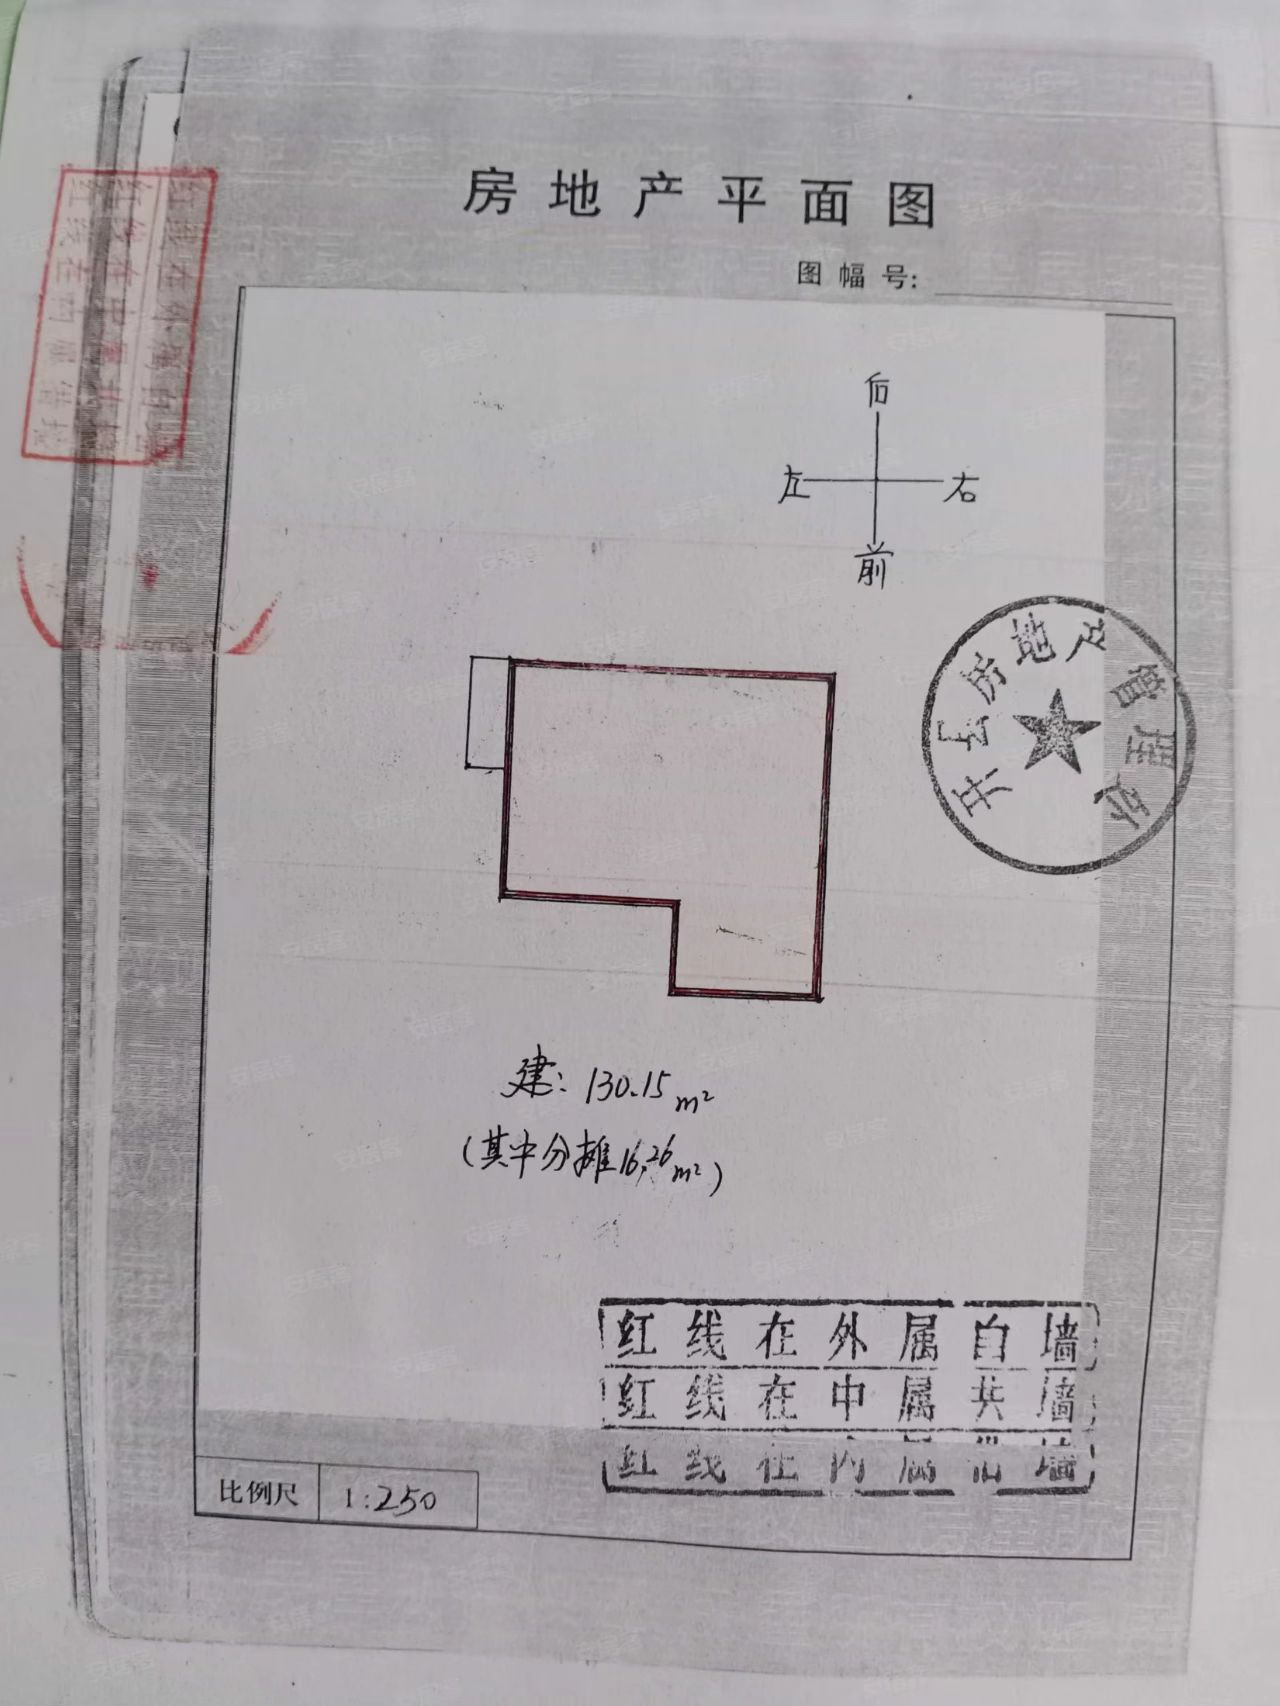 房地产平面图
图幅号:
后
左 右
前
开县房地产管理处
建: 130.15m²
(其中分摊16.26m²)
红线在外属自墙
红线在中属共墙
红线在内属借墙
比例尺 1:250
红线在外属自墙
红线在中属共墙
红线在内属借墙